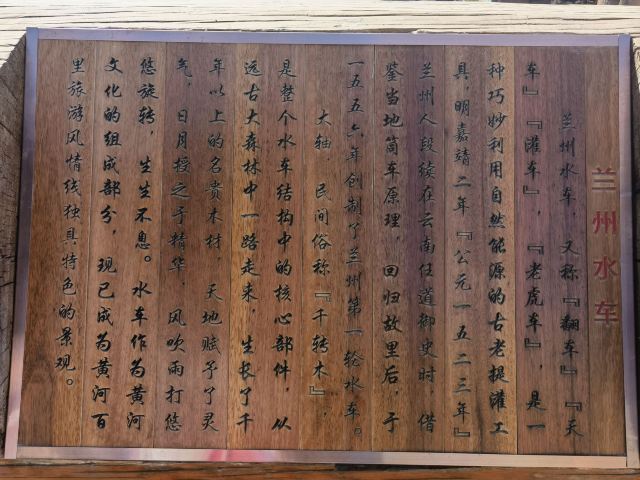 兰州水车
兰州水车，又称『翻车』『天
车』『灌车』，『老虎车』，是一
种巧妙利用自然能源的古老提灌工
具，明嘉靖二年『公元一五二三年』
兰州人段续在云南任道御史时，借
鉴当地筒车原理，回归故里后，于
一五五六年创制了兰州第一轮水车。
大轴，民间俗称『千转木』，
是整个水车结构中的核心部件，从
远古大森林中一路走来，生长了千
年以上的名贵木材，天地赋予了灵
气，日月授之于精华，风吹雨打悠
悠旋转，生生不息。水车作为黄河
文化的组成部分，现已成为黄河百
里旅游风情线独具特色的景观。